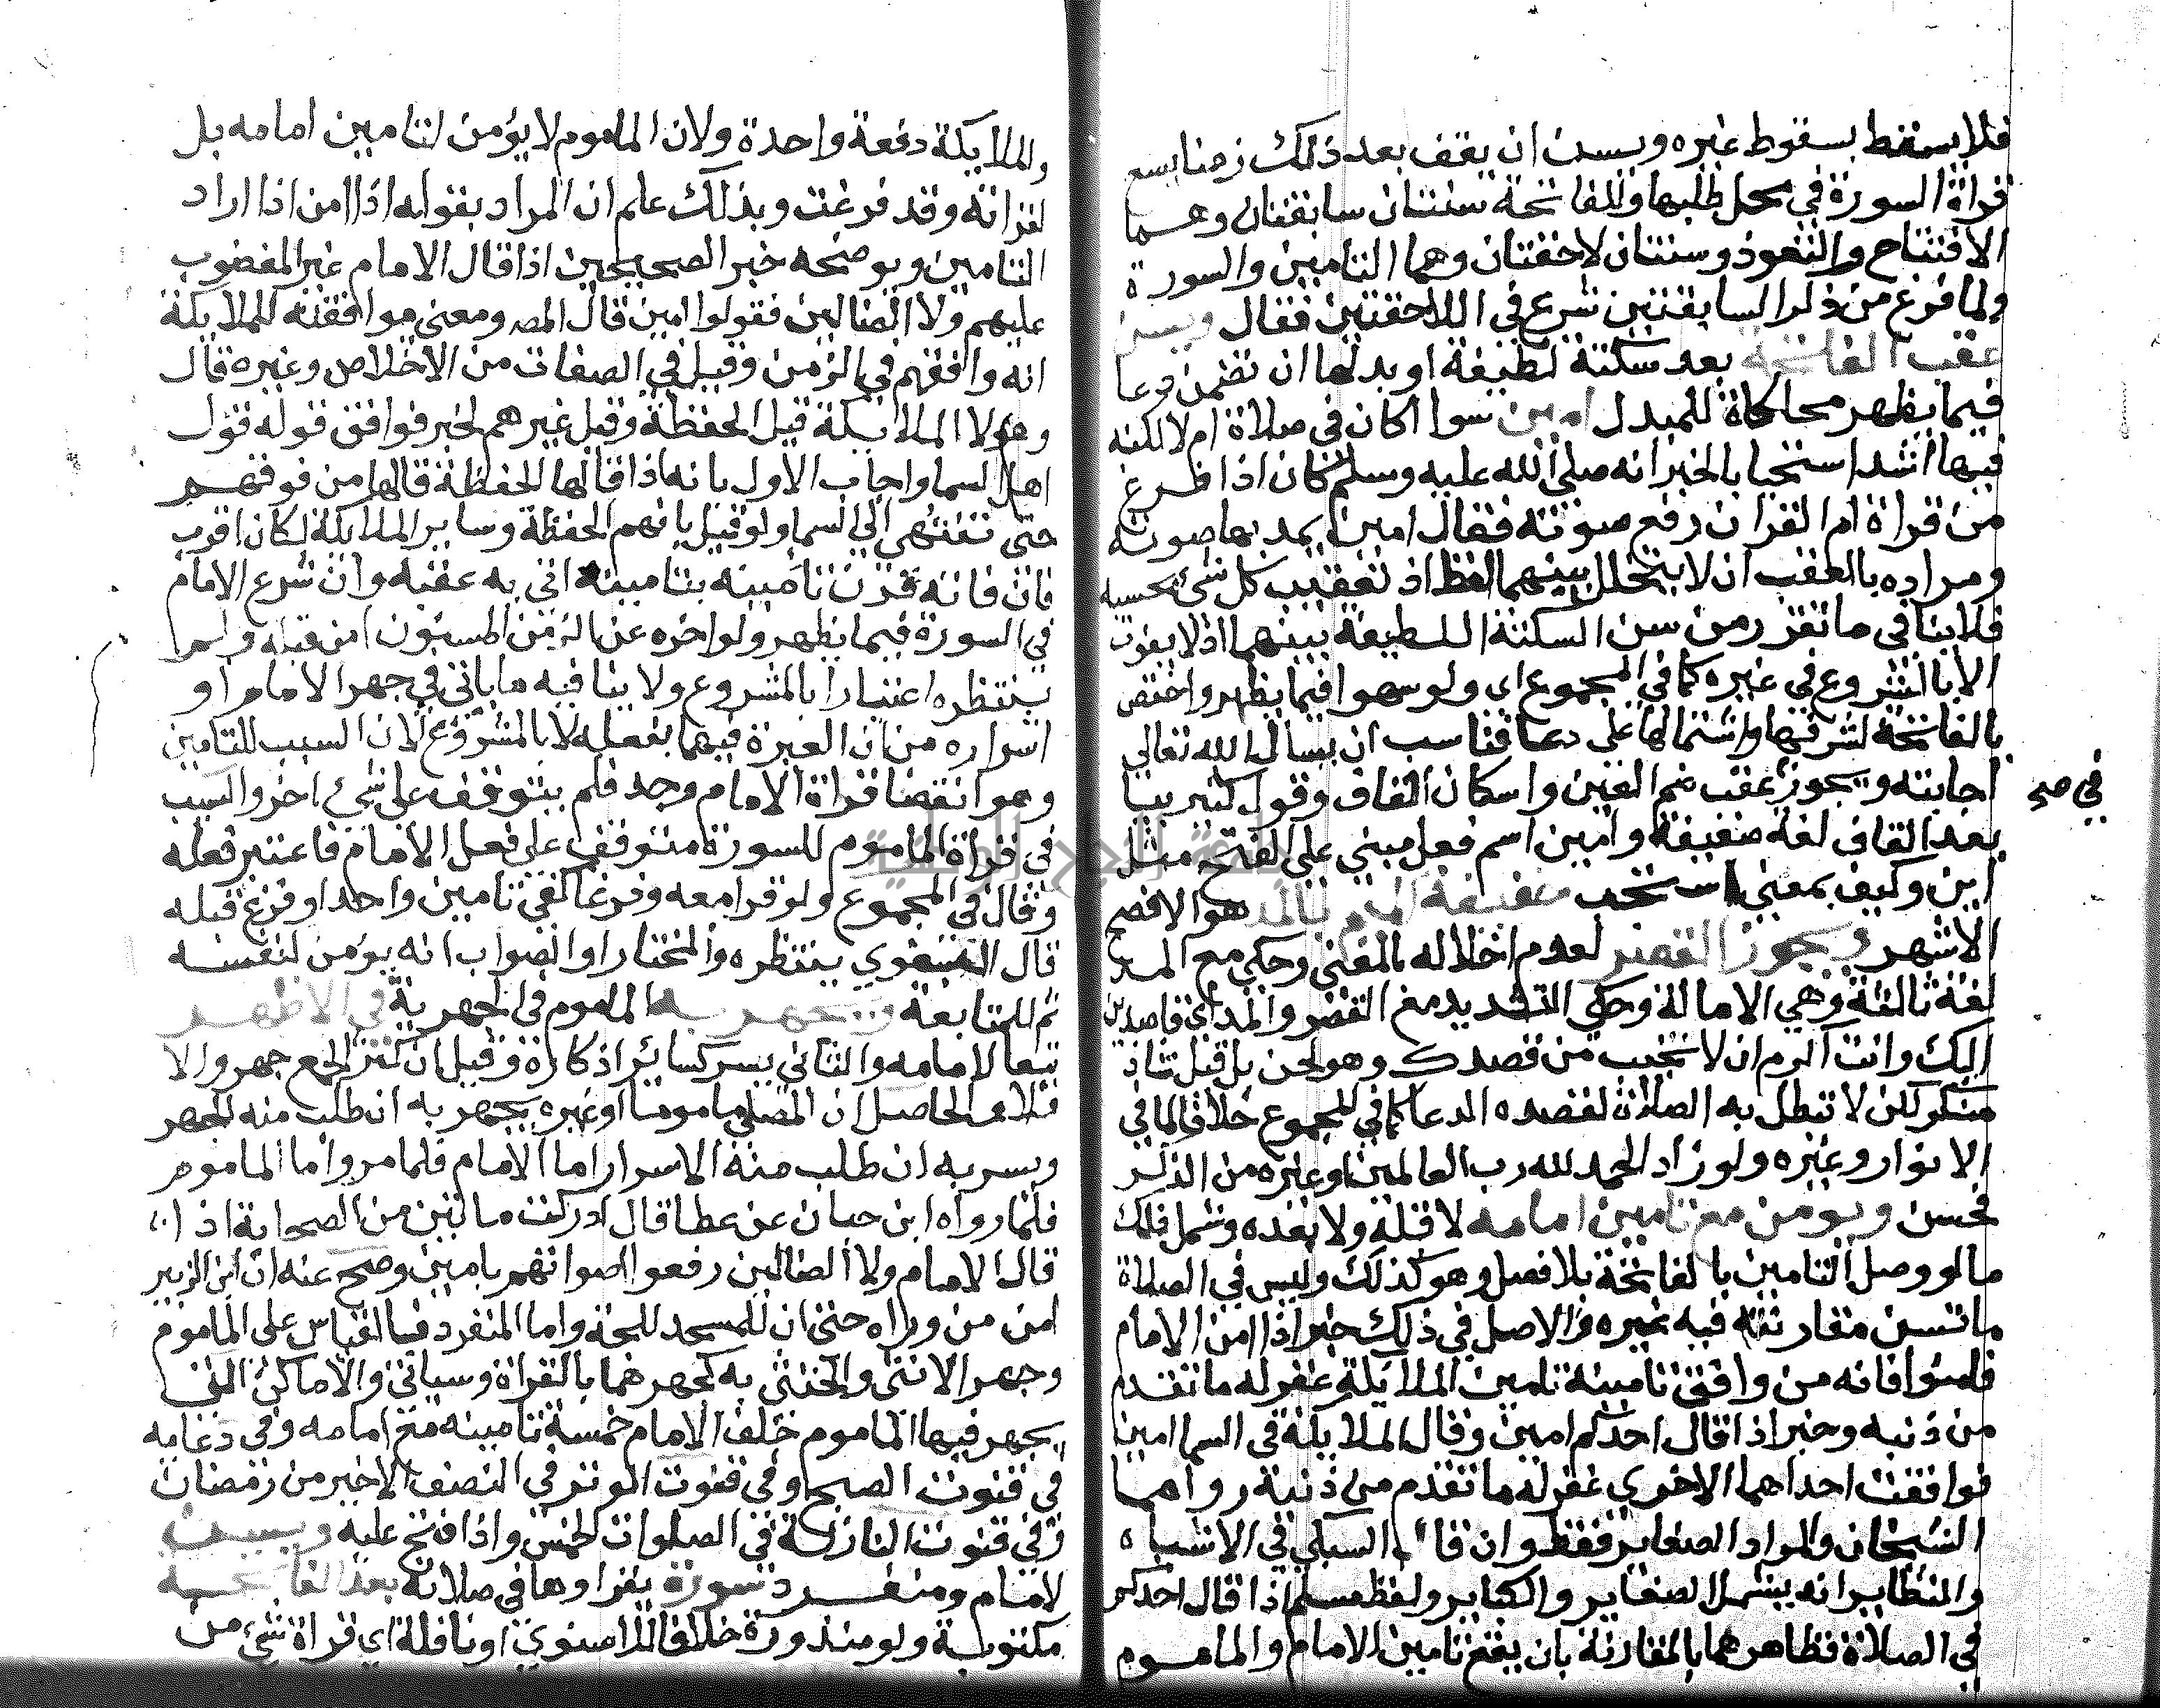 فلا يسقط بسقوط غيره ويسن ان يقف بعد ذلك زمنا يسع
قراة السورة في محل طلبها وللفاتحة سنتان سابقتان وهما
الافتتاح والتعوذ وسنتان لاحقتان وهما التامين والسورة
ولما فرغ من ذكر السابقتين شرع في اللاحقتين فقال ويسن
عقب الفاتحة بعد سكتة لطيفة او بدلها ان تضمن دعا
فيما يظهر محاكاة للمبدل امين سوا اكان في صلاة ام لا لكنه
فيها اشد استحبابا لخبر انه صلى الله عليه وسلم كان اذا فرغ
من قراة ام القران رفع صوته فقال امين يمد بها صوته
ومراده بالعقب ان لا يتخلل بينهما لفظ اذ تعقيب كل شي بحسبه
فلا ينافي ما تقرر من سن السكتة اللطيفة بينهما اذ لا يفوت
الا بالشروع في غيره كما في المجموع اي ولو سهوا فيما يظهر واختص
بالفاتحة لشرفها واشتمالها على دعا فناسب ان يسال الله تعالى
اجابته ويجوز عقب ضم العين واسكان القاف وقول كثير بيا
في صح
بعد القاف لغة ضعيفة وامين اسم فعل مبني على الفتح مثل
اين وكيف بمعنى استجب خفيفة الميم بالمد هو الافصح
الاشهر ويجوز القصر لعدم اخلاله بالمعنى وحكي مع المد
لغة ثالثة وهي الامالة وحكي التشديد مع القصر والمد اي قاصدين
اليك وانت اكرم ان لا تخيب من قصدك وهو لحن بل قيل شاذ
منكر لكن لا تبطل به الصلاة لقصده الدعا كما في المجموع خلافا لما في
الانوار وغيره ولو زاد الحمد لله رب العالمين او غيره من الذكر
فحسن ويومن مع تامين امامه لا قبله ولا بعده وشمل ذلك
ما لو وصل التامين بالفاتحة بلا فصل وهو كذلك وليس في الصلاة
ما تسن مقارنته فيه غيره والاصل في ذلك خبر اذا امن الامام
فامنوا فانه من وافق تامينه تامين الملايكة غفر له ما تقدم
من ذنبه وخبر اذا قال احدكم امين وقال الملايكة في السما امين
فوافقت احداهما الاخرى غفر له ما تقدم من ذنبه رواهما
الشيخان والمراد الصغاير فقط وان قال السبكي في الاشباه
والنظاير انه يشمل الصغاير والكباير ولفظ مسلم اذا قال احدكم
في الصلاة فظاهرهما بالمقارنة بان يقع تامين الامام والماموم
والملايكة دفعة واحدة ولان الماموم لا يؤمن لتامين امامه بل
لقراته وقد فرغت وبذلك علم ان المراد بقوله اذا امن اذا اراد
التامين ويوضحه خبر الصحيحين اذا قال الامام غير المغضوب
عليهم ولا الضالين فقولوا امين قال المص ومعنى موافقته للملايكة
انه وافقهم في الزمن وقيل في الصفات من الاخلاص وغيره قال
وهولا الملايكة قيل الحفظة وقيل غيرهم لخبر فوافق قوله قول
اهل السما واجاب الاول بانه اذا قالها الحفظة قالها من فوقهم
حتى تنتهي الى السما ولو قيل بانهم الحفظة وساير الملايكة لكان اقرب
فان فاته قرن تامينه بتامينه اتى به عقبه وان شرع الامام
في السورة فيما يظهر ولو اخره عن الزمن المسنون امن قبله ولم
ينتظره اعتبارا بالمشروع ولا ينافيه ما ياتي في جهر الامام او
اسراره من ان العبرة فيهما بفعله لا بالمشروع لان السبب للتامين
وهو انقضا قراة الامام وجد فلم يتوقف على شي اخر والسبب
في قراة الماموم للسورة متوقف على فعل الامام فاعتبر فعله
وقال في المجموع ولو قرا معه وفرغا كفى تامين واحد او فرغ قبله
قال البغوي ينتظره والمختار او الصواب انه يؤمن لنفسه
ثم للمتابعة ويجهر به الماموم في الجهرية في الاظهر
تبعا لامامه والثاني يسر كسائر اذكاره وقيل ان كثر الجمع جهر والا
فلا والحاصل ان المصلي ماموما او غيره يجهر به ان طلب منه الجهر
ويسر به ان طلب منه الاسرار اما الامام فلما مر واما الماموم
فلما رواه ابن حبان عن عطا قال ادركت ماتين من الصحابة اذا
قال الامام ولا الضالين رفعوا اصواتهم بامين وصح عنه ان ابن الزبير
امن من وراه حتى ان للمسجد للجة واما المنفرد فبالقياس على الماموم
وجهر الانثى والخنثى به كجهرهما بالقراة وسياتي والاماكن التي
يجهر فيها الماموم خلف الامام خمسة تامينه مع امامه وفي دعايه
في قنوت الصبح وفي قنوت الوتر في النصف الاخير من رمضان
وفي قنوت النازلة في الصلوات الخمس واذا فتح عليه ويسن
لامام ومنفرد سورة يقراوها في صلاته بعد الفاتحة
مكتوبة ولو منذورة خلافا للاسنوي او نافلة اي قراة شي من